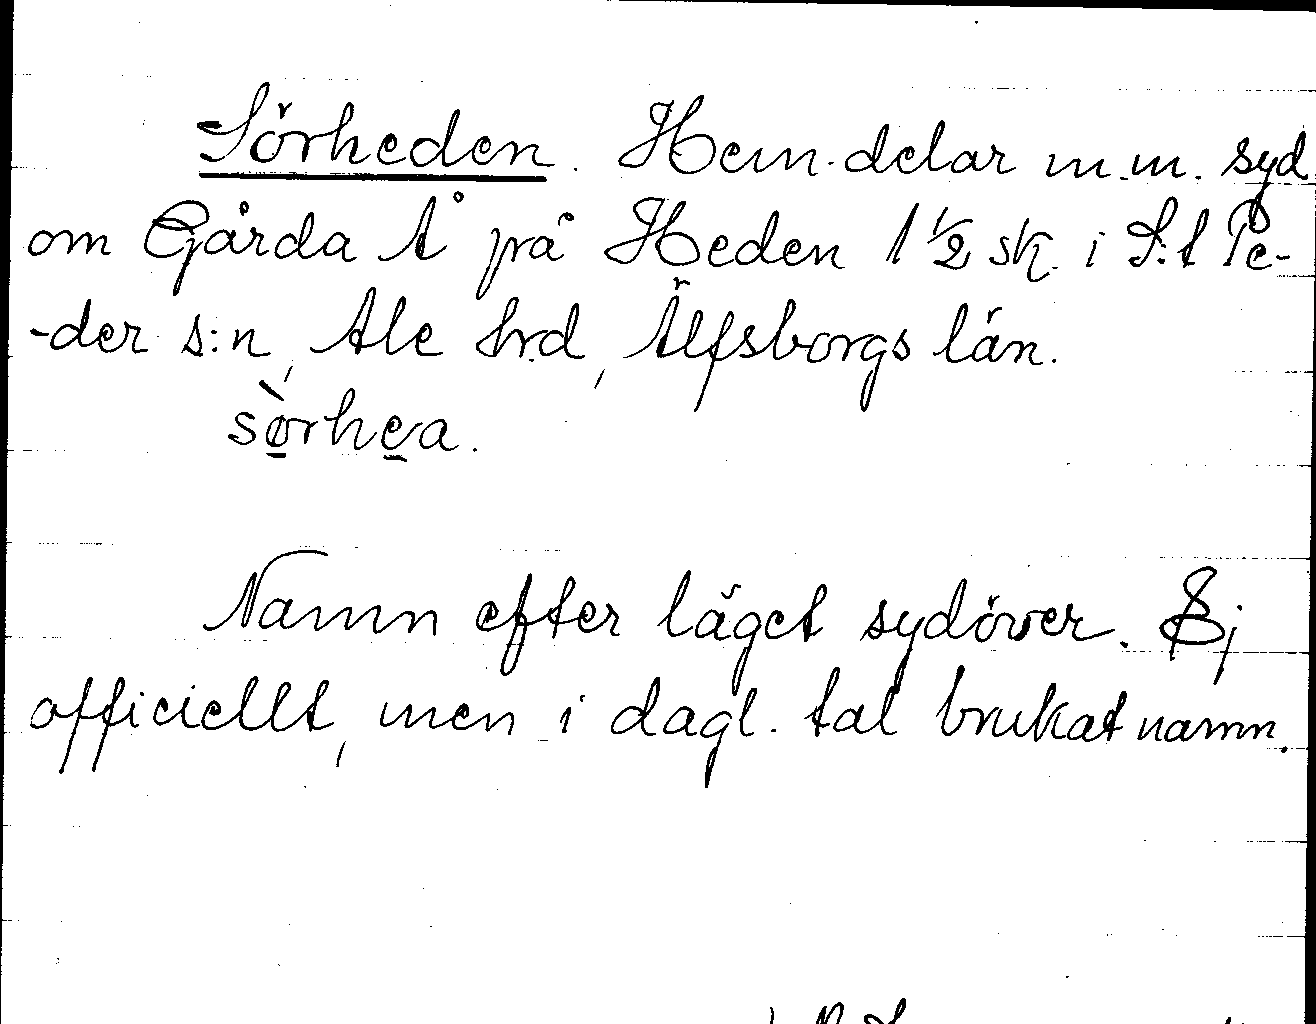 Sörheden. Hem.delar m.m. syd
om Gårda Å på Heden 1 1/2 sk. i S:t Pe-
-der s:n, Ale hrd, Älfsborgs län.
sòrhea.
Namn efter läget sydöver. Ej
officiellt, men i dagl. tal brukat namn.